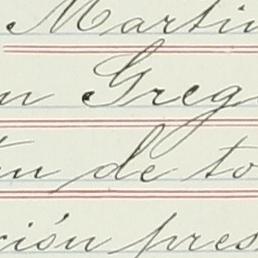 Martin
n Greg
ón de to
ción pres